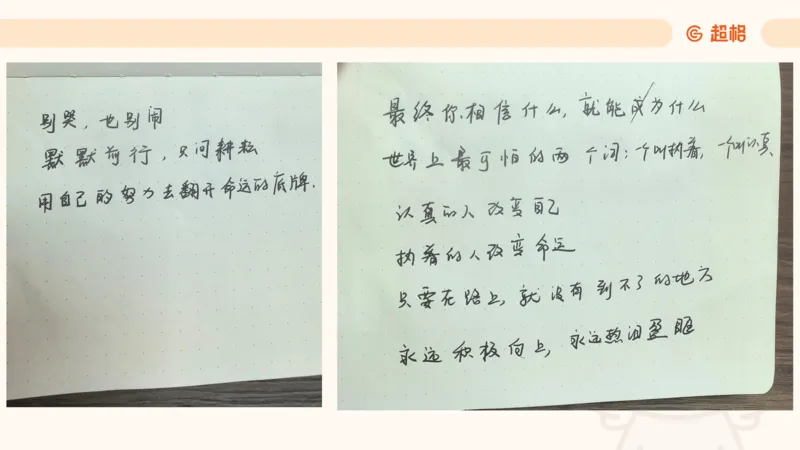 超格
别哭，也别闹
默默前行，只问耕耘
用自己的努力去翻开命运的底牌.
最终你相信什么，就能成为什么
世界上最可怕的两个词：一个叫执着，一个叫认真
认真的人改变自己
执着的人改变命运
只要在路上，就没有到不了的地方
永远积极向上，永远热泪盈眶